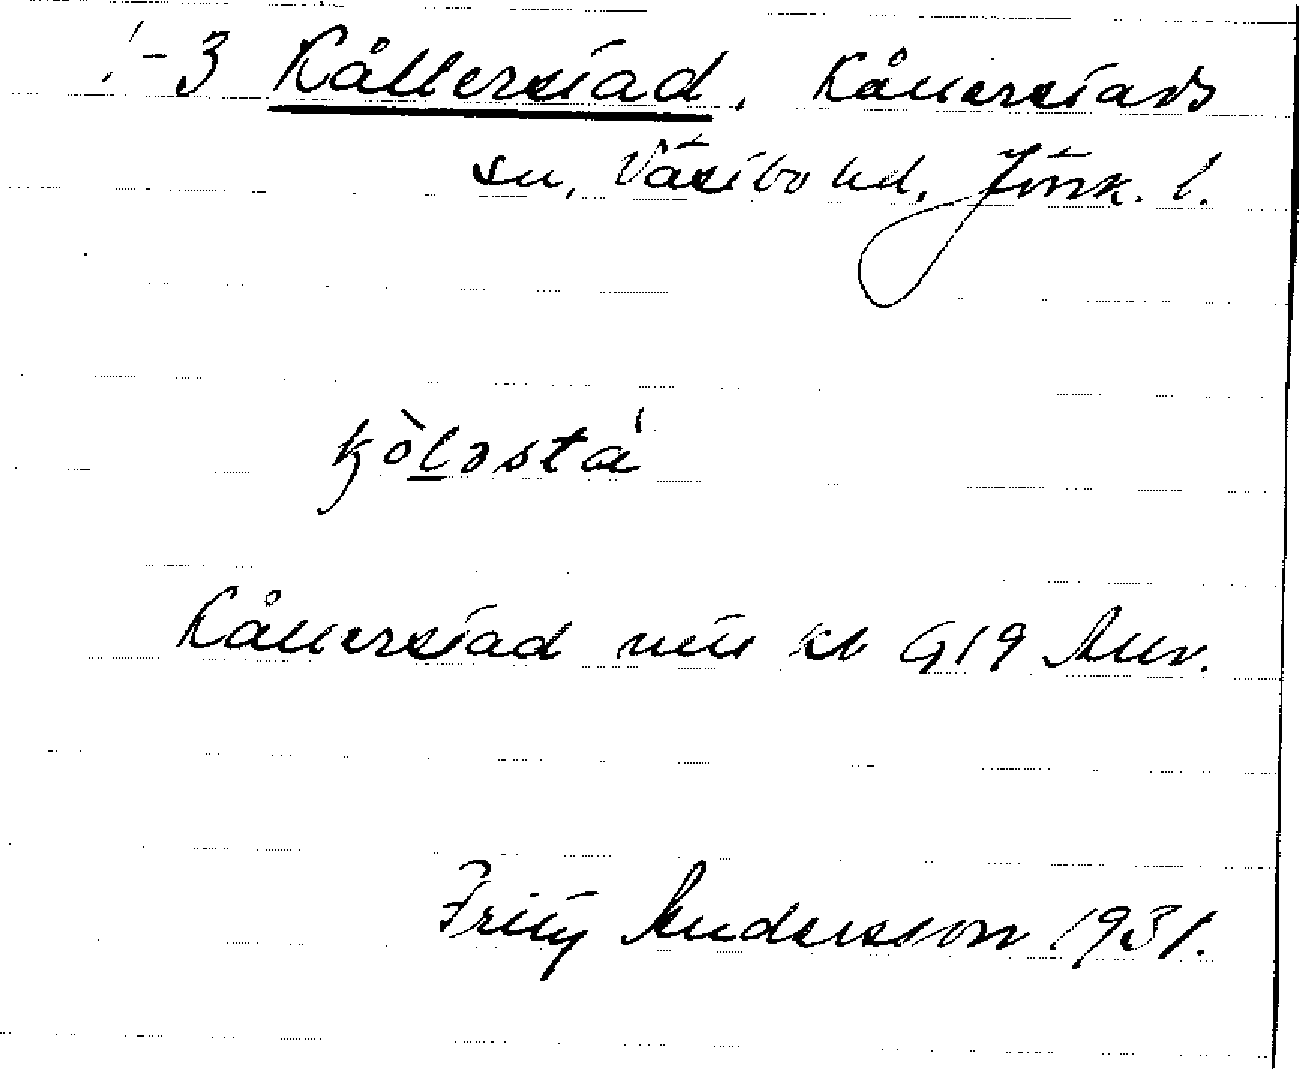 1-3 Kållerstad. Kållerstads
sn, Västbo hd, Jönk. l.
kòləstá
Kållerstad utn kb G19 Allv.
Fritz Andersson 1931.